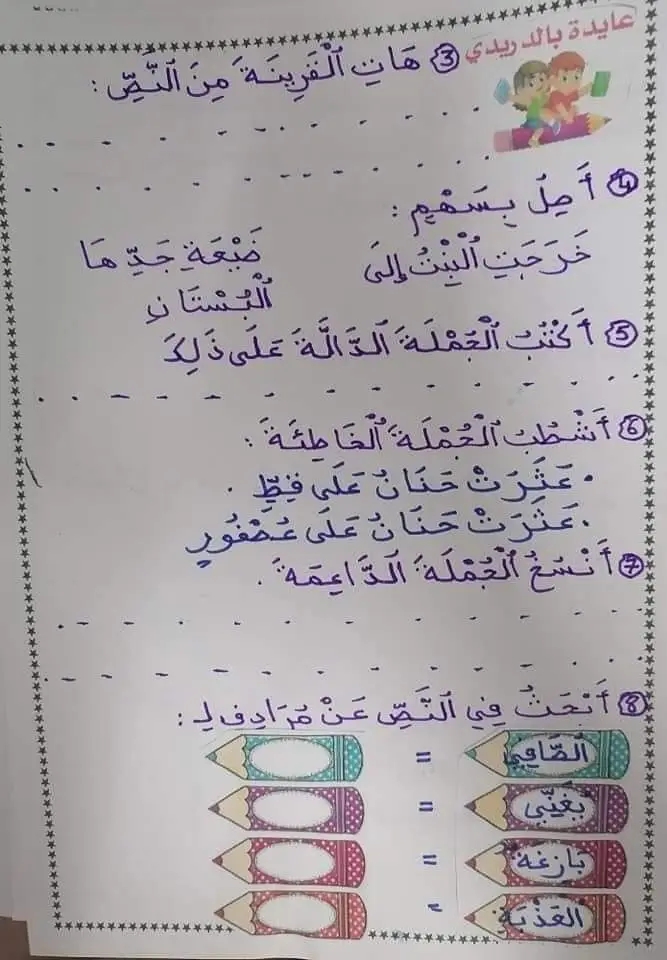 عايدة بالدريدي
3 هَاتِ ٱلْقَرِينَةَ مِنَ ٱلنَّصِّ :
4 أَصِلُ بِسَهْمٍ :
خَرَجَتِ ٱلْبِنْتُ إِلَى ضَيْعَةِ جَدِّهَا
ٱلْبُسْتَانِ
5 أَكْتُبُ ٱلْجُمْلَةَ ٱلدَّالَّةَ عَلَى ذَلِكَ
6 أَشْطُبُ ٱلْجُمْلَةَ ٱلْخَاطِئَةَ :
. عَثَرَتْ حَنَانُ عَلَى قِطٍّ .
. عَثَرَتْ حَنَانُ عَلَى عُصْفُورٍ
7 أَنْسَخُ ٱلْجُمْلَةَ ٱلدَّاعِمَةَ .
8 أَبْحَثُ فِي ٱلنَّصِّ عَنْ مُرَادِفٍ لِـ :
ٱلصَّافِي =
يُغَنِّي =
بَازِغَة =
العَذْبَة =